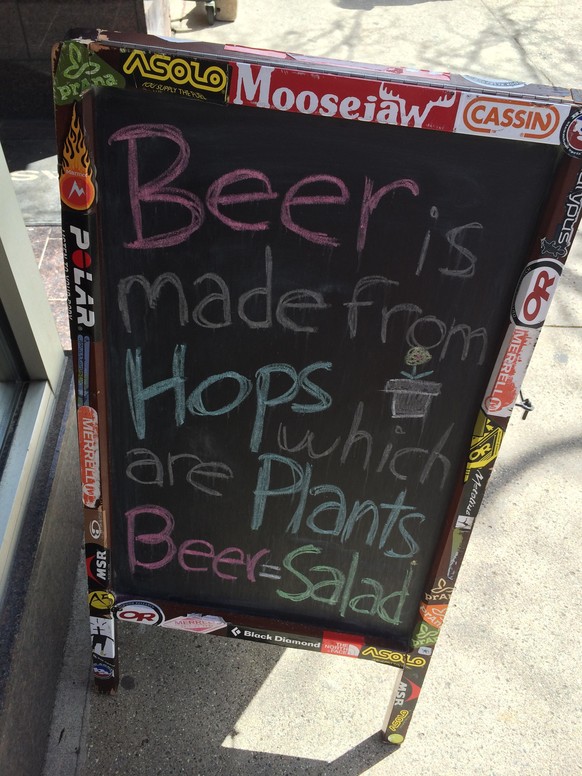 prana
ASOLO
Moosejaw
CASSIN
POLAR
OR
MERRELL
MERRELL
MSR
OR
Black Diamond
THE NORTH FACE
ASOLO
MSR
ASOLO
Beer is
made from
Hops
which
are Plants
Beer = Salad